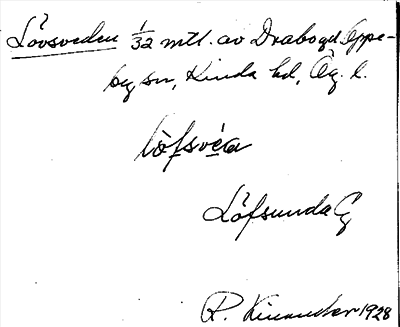 Lövsveden 1/32 mtl. av Drabogd. Oppe-
by sn, Kinda hd, Ög. l.
lòfsvéa
Löfsunda Eg
R. Kinander 1928